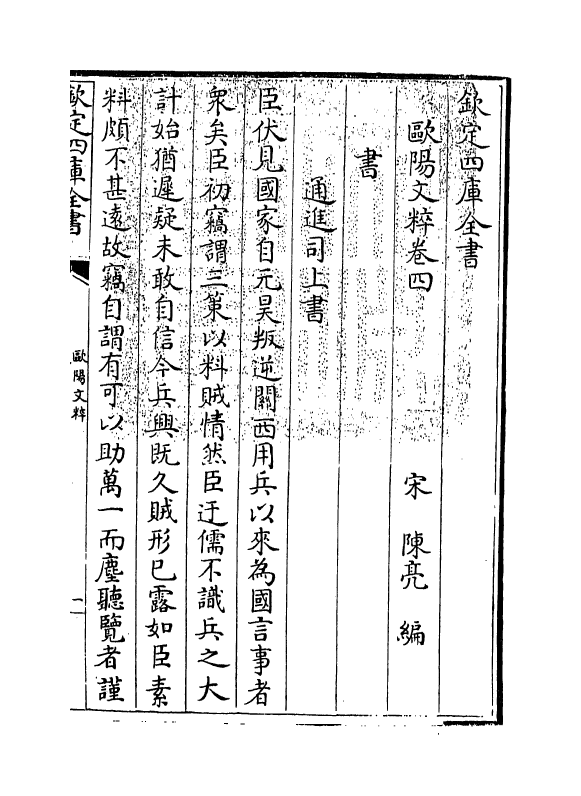 欽定四庫全書
歐陽文粹卷四
宋 陳亮 編
書
通進司上書
臣伏見國家自元昊叛逆關西用兵以來為國言事者
衆矣臣初竊謂三策以料賊情然臣迂儒不識兵之大
計始猶遲疑未敢自信今兵興既久賊形已露如臣素
料頗不甚遠故竊自謂有可以助萬一而塵聽覽者謹
欽定四庫全書
歐陽文粹